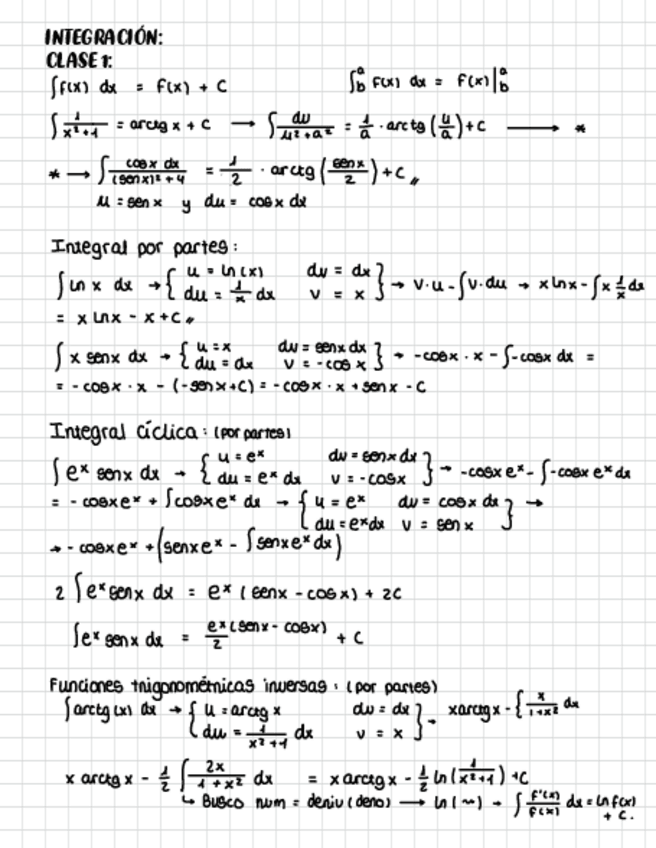 INTEGRACIÓN:
CLASE 1:
∫f(x) dx = F(x) + C ∫ₐᵇ f(x) dx = F(x)|ₐᵇ
∫ 1/(x²+1) = arctg x + C → ∫ du/(u²+a²) = 1/a · arctg (u/a) + C → *
* → ∫ cosx dx/((senx)²+4) = 1/2 · arctg (senx/2) + C //
u = senx y du = cosx dx
Integral por partes:
∫ ln x dx → { u = ln(x) dv = dx } → v·u - ∫v·du → x lnx - ∫x 1/x dx
{ du = 1/x dx v = x }
= x lnx - x + C //
∫ x senx dx → { u = x dv = senx dx } → -cosx · x - ∫-cosx dx =
{ du = dx v = -cosx }
= - cosx · x - (-senx + C) = - cosx · x + senx - C
Integral cíclica: (por partes)
∫ eˣ senx dx → { u = eˣ dv = senx dx } → -cosx eˣ - ∫-cosx eˣ dx
{ du = eˣ dx v = -cosx }
= - cosx eˣ + ∫cosx eˣ dx → { u = eˣ dv = cosx dx } →
{ du = eˣ dx v = senx }
→ - cosx eˣ + (senx eˣ - ∫senx eˣ dx)
2 ∫eˣ senx dx = eˣ (senx - cosx) + 2C
∫eˣ senx dx = eˣ(senx - cosx)/2 + C
Funciones trigonométricas inversas: (por partes)
∫arctg(x) dx → { u = arctg x dv = dx } → x arctg x - ∫ x/(1+x²) dx
{ du = 1/(x²+1) dx v = x }
x arctg x - 1/2 ∫ 2x/(1+x²) dx = x arctg x - 1/2 ln(1/(x²+1)) + C
↳ Busco num = deriv(deno) → ln(~) → ∫ f'(x)/f(x) dx = ln f(x)
+ C.